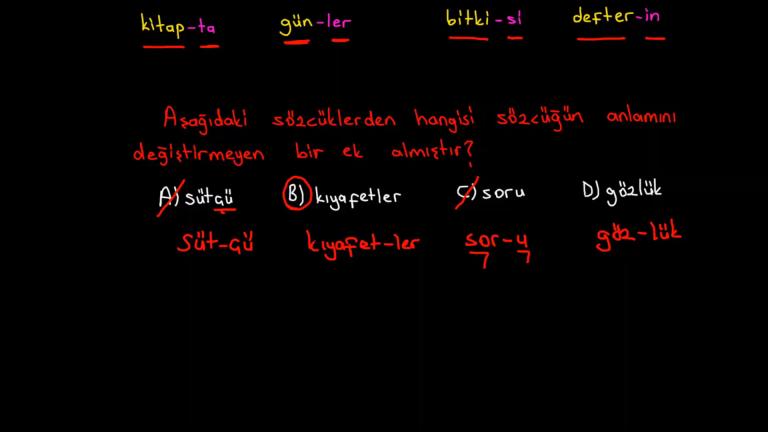 kitap-ta gün-ler bitki-si defter-in
Aşağıdaki sözcüklerden hangisi sözcüğün anlamını
değiştirmeyen bir ek almıştır?
A) sütçü B) kıyafetler C) soru D) gözlük
süt-çü kıyafet-ler sor-u göz-lük